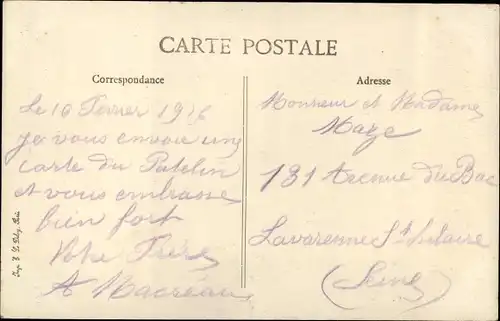 CARTE POSTALE
Correspondance
Le 10 Fevrier
je vous envoie une
carte du Patelin
et vous embrasse
bien fort
Votre Frère
A
Adresse
Monsieur et Madame
Maze
131 Avenue du Bac
Lavarenne St Hilaire
(Seine)